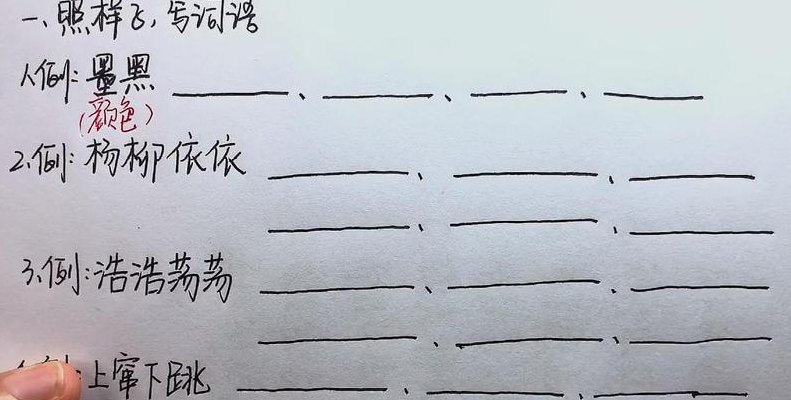 一、照样子，写词语
1、例：墨黑 ______、______、______、______
（颜色）
2、例：杨柳依依 ______、______、______
______、______、______
3、例：浩浩荡荡 ______、______、______
______、______、______
例：上窜下跳 ______、______、______